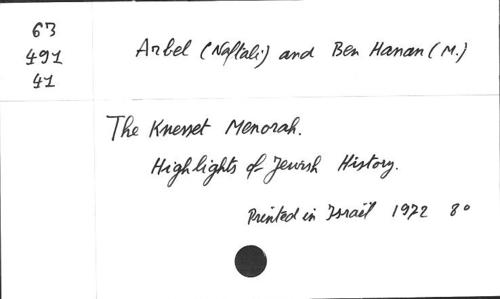 63
491
41
Arbel (Naftali) and Ben Hanan (M.)
The Knesset Menorah.
Highlights of Jewish History.
Printed in Israël 1972 8°